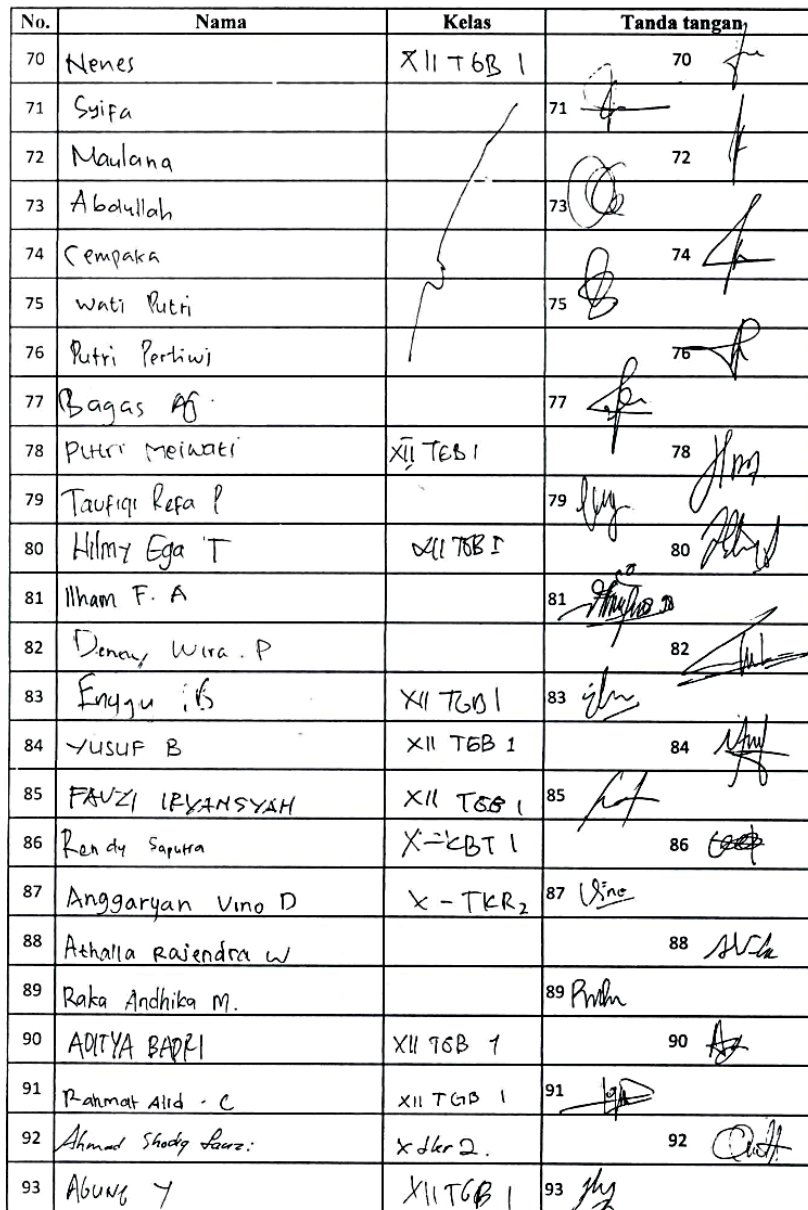 No. Nama Kelas Tanda tangan
70 Nenes XII TGB 1 70
71 Syifa 71
72 Maulana 72
73 Abdullah 73
74 Cempaka 74
75 Wati Putri 75
76 Putri Pertiwi 76
77 Bagas 77
78 Putri Meiwati XII TGB 1 78
79 Taufiqi Refa P 79
80 Hilmy Ega T XII TGB I 80
81 Ilham F. A 81
82 Wira. P 82
83 XII TGB 1 83
84 YUSUF B XII TGB 1 84
85 FAUZI IRYANSYAH XII TGB 1 85
86 Rendy Saputra 86
87 Anggaryan Vino D X - TKR2 87 Vino
88 Athalla Rajendra W 88
89 Raka Andhika M. 89
90 ADITYA BADRI XII TGB 1 90
91 Rahmat Alid . C XII TGB 1 91
92 Ahmad Shodiq X tkr 2. 92
93 AGUNG Y XII TGB 1 93